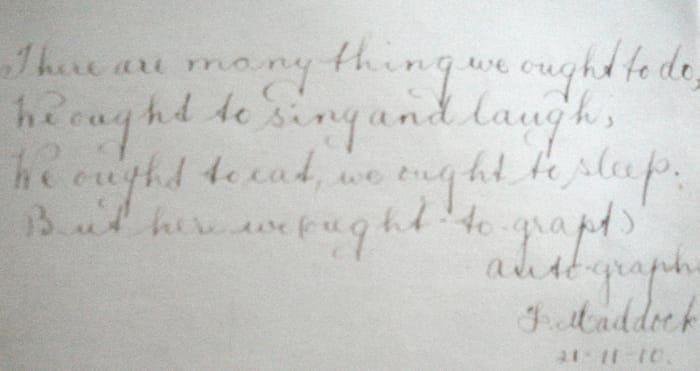 There are many thing we ought to do,
We ought to sing and laugh,
We ought to eat, we ought to sleep.
But here we (ought-to-graph)
auto-graph
F. Maddock
21-11-10.